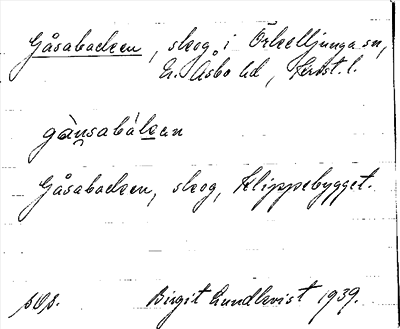 Gåsabacken, skog i Örkelljunga sn,
N. Åsbo hd, Krist. l.
gàṉsabàḵan
Gåsabacken, skog, Klippebygget.
sOs. Birgit Lundkvist 1939.